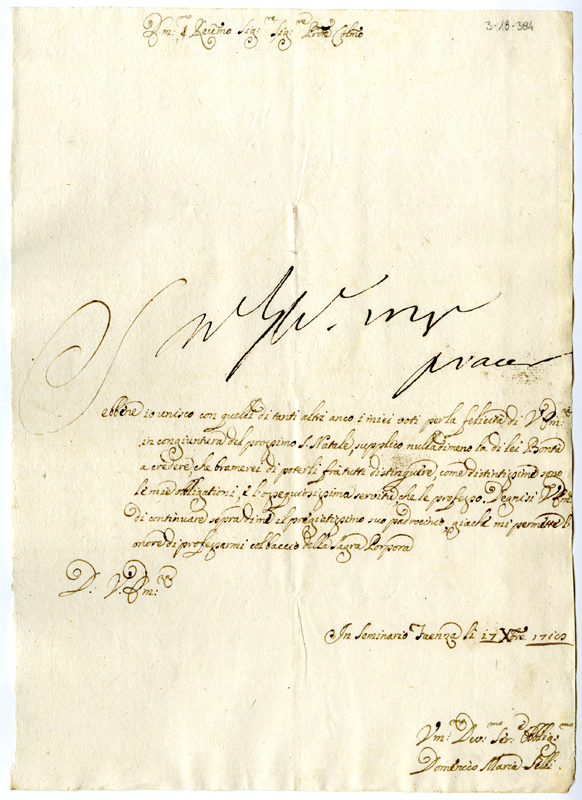 3-18-384
Em:mo e Revẽmo Sig:re Sig:re Pron Colmo
piacer
Sebbene io unisco con quelli di tanti altri anco i miei voti per la felicità di V. Em:za
in congiuntura del prossimo S. Natale, supplico nulladimeno la di lei Bontà
a credere, che bramerei di poterli frà tutti distinguere, come distintissime sono
le mie obligationi, e l'ossequiosissima servitù che le professo. Degnisi V. Em:
di continuare sopra di me il pregiatissimo suo padrocinio, giache mi permette l'
onore di professarmi col baccio della Sagra Porpora
D: V: Em:za
In Seminario Faenza li 17 Xbre
Vm:mo Dev:mo Ser:e Obblig:mo
Domenico Maria Selli